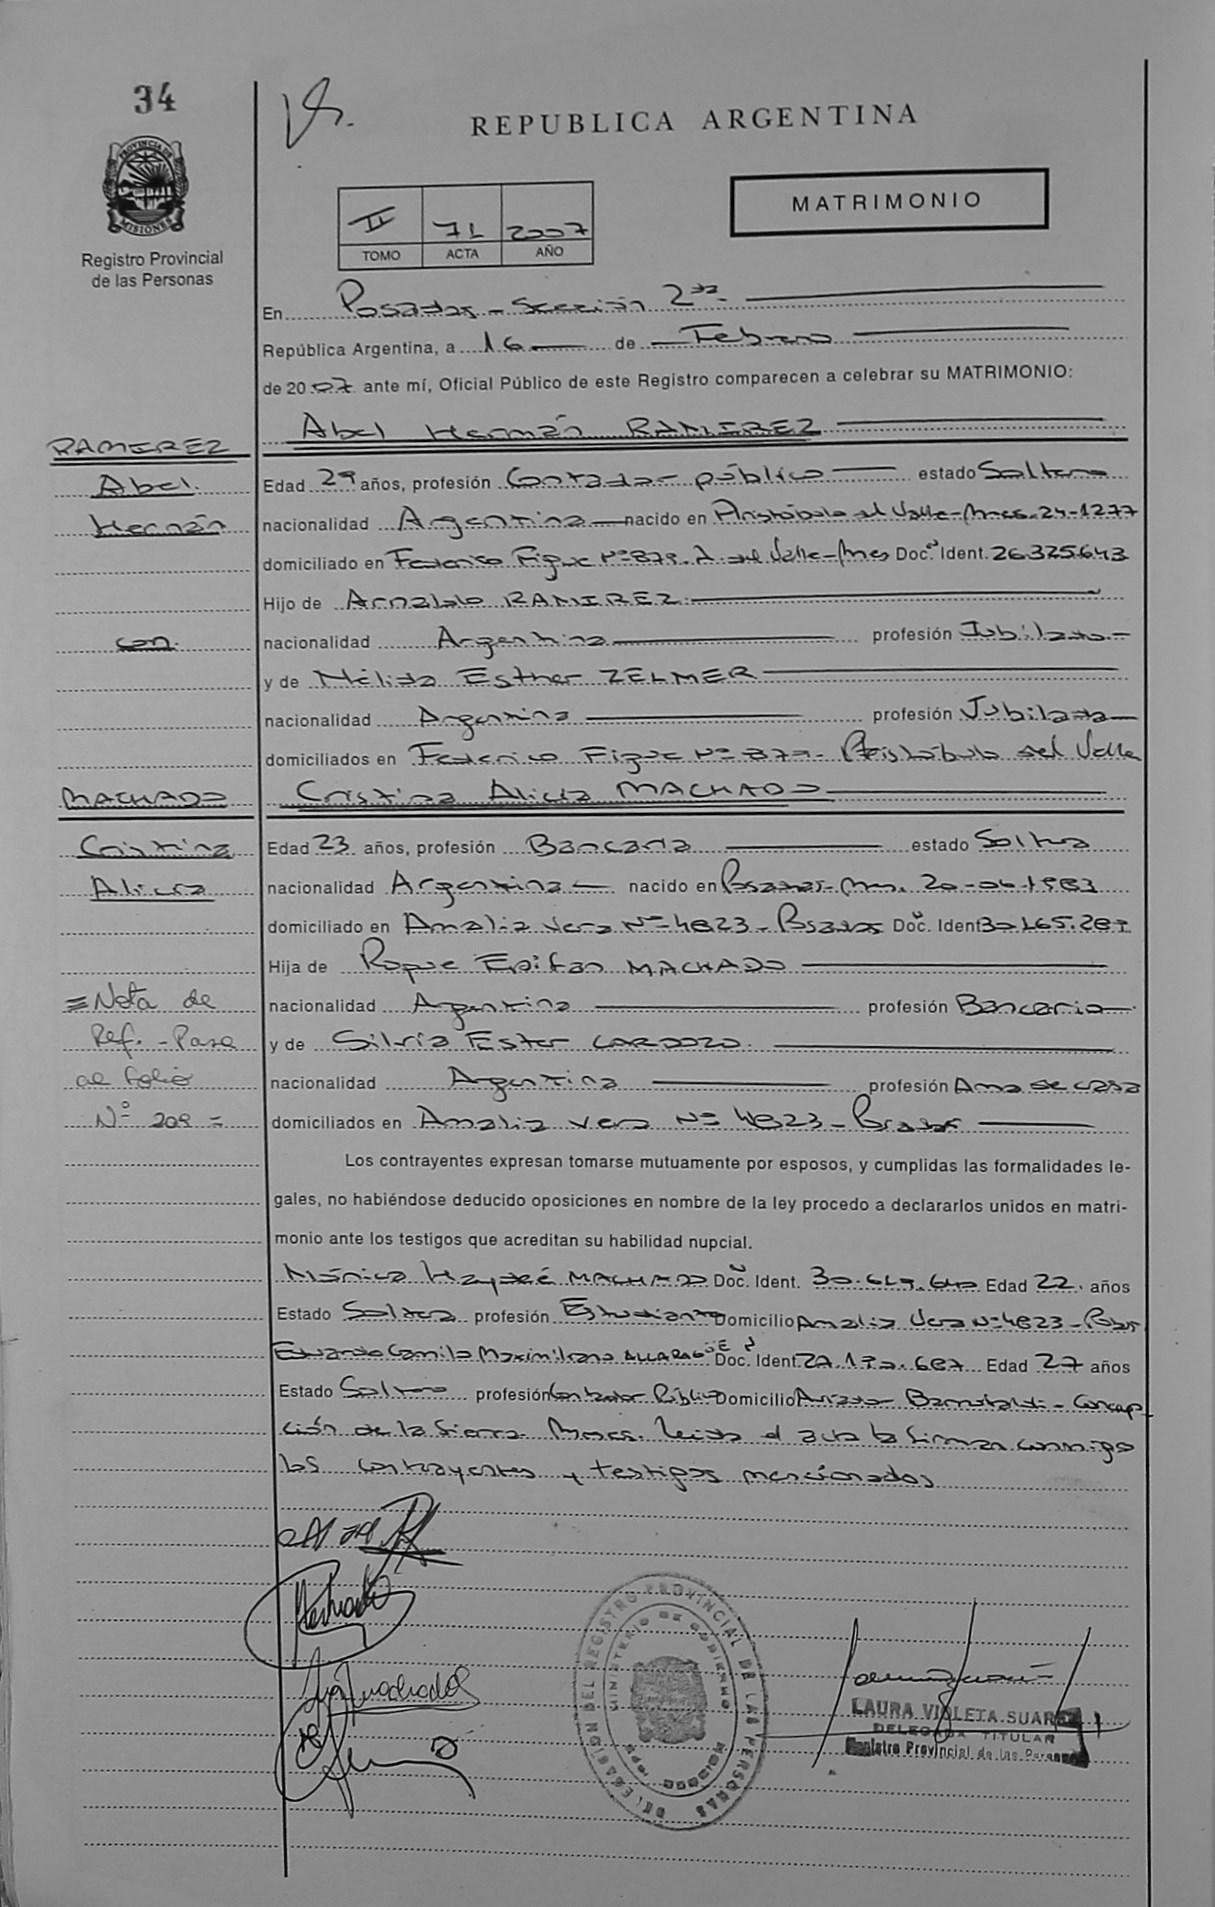 34
REPUBLICA ARGENTINA
PROVINCIA DE
MISIONES
Registro Provincial
de las Personas
MATRIMONIO
II 71 2007
TOMO ACTA AÑO
En Posadas - Sección 2da
República Argentina, a 16 de Febrero
de 2007 ante mí, Oficial Público de este Registro comparecen a celebrar su MATRIMONIO:
RAMIREZ Abel Hernán RAMIREZ
Abel. Edad 29 años, profesión Contador público estado Soltero
Hernán nacionalidad Argentina nacido en Aristóbulo del Valle-Mnes. 24-1277
domiciliado en Federico Figue Nº 879. A. del Valle-Mnes Doc. Ident. 26.325.643
Hijo de Arnaldo RAMIREZ
con. nacionalidad Argentina profesión Jubilado
y de Nélida Esther ZELMER
nacionalidad Argentina profesión Jubilada
domiciliados en Federico Figue Nº 879 - Aristóbulo del Valle
MACHADO Cristina Alicia MACHADO
Cristina Edad 23 años, profesión Bancaria estado Soltera
Alicia nacionalidad Argentina nacido en Posadas-Mnes. 20-06-1983
domiciliado en Amalia Vera Nº 4823 - Posadas Doc. Ident 30.465.287
Hija de Roque Epifan MACHADO
= Nota de nacionalidad Argentina profesión Bancario
Ref. - Pase y de Silvia Ester CARDOZO.
al folio nacionalidad Argentina profesión Ama de casa
Nº 209 = domiciliados en Amalia Vera Nº 4823 - Posadas
Los contrayentes expresan tomarse mutuamente por esposos, y cumplidas las formalidades le-
gales, no habiéndose deducido oposiciones en nombre de la ley procedo a declararlos unidos en matri-
monio ante los testigos que acreditan su habilidad nupcial.
Mónica Haydeé MACHADO Doc. Ident. Edad 22. años
Estado Soltera profesión Estudiante Domicilio Amalia Vera Nº 4823 - Posas.
Eduardo Camilo Maximiliano Doc. Ident. Edad 27 años
Estado Soltero profesión Contador Público Domicilio - Concep
ción de la Sierra. Mnes. Leída el acta la firman conmigo
los contrayentes y testigos mencionados
Machado
Machado
DELEGACION DEL REGISTRO PROVINCIAL DE LAS PERSONAS
MINISTERIO DE GOBIERNO
LAURA VIOLETA SUAREZ
DELEGADA TITULAR
Registro Provincial de las Personas